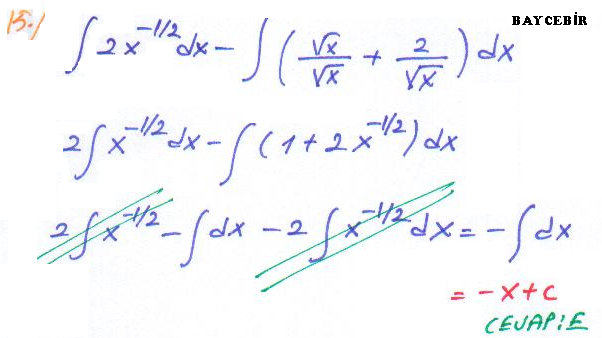 15-)
BAY CEBİR
∫ 2x^{-1/2} dx - ∫ ( √x/√x + 2/√x ) dx
2∫ x^{-1/2} dx - ∫ (1 + 2x^{-1/2}) dx
2∫ x^{-1/2} - ∫ dx - 2∫ x^{-1/2} dx = - ∫ dx
= -x+c
CEVAP:E